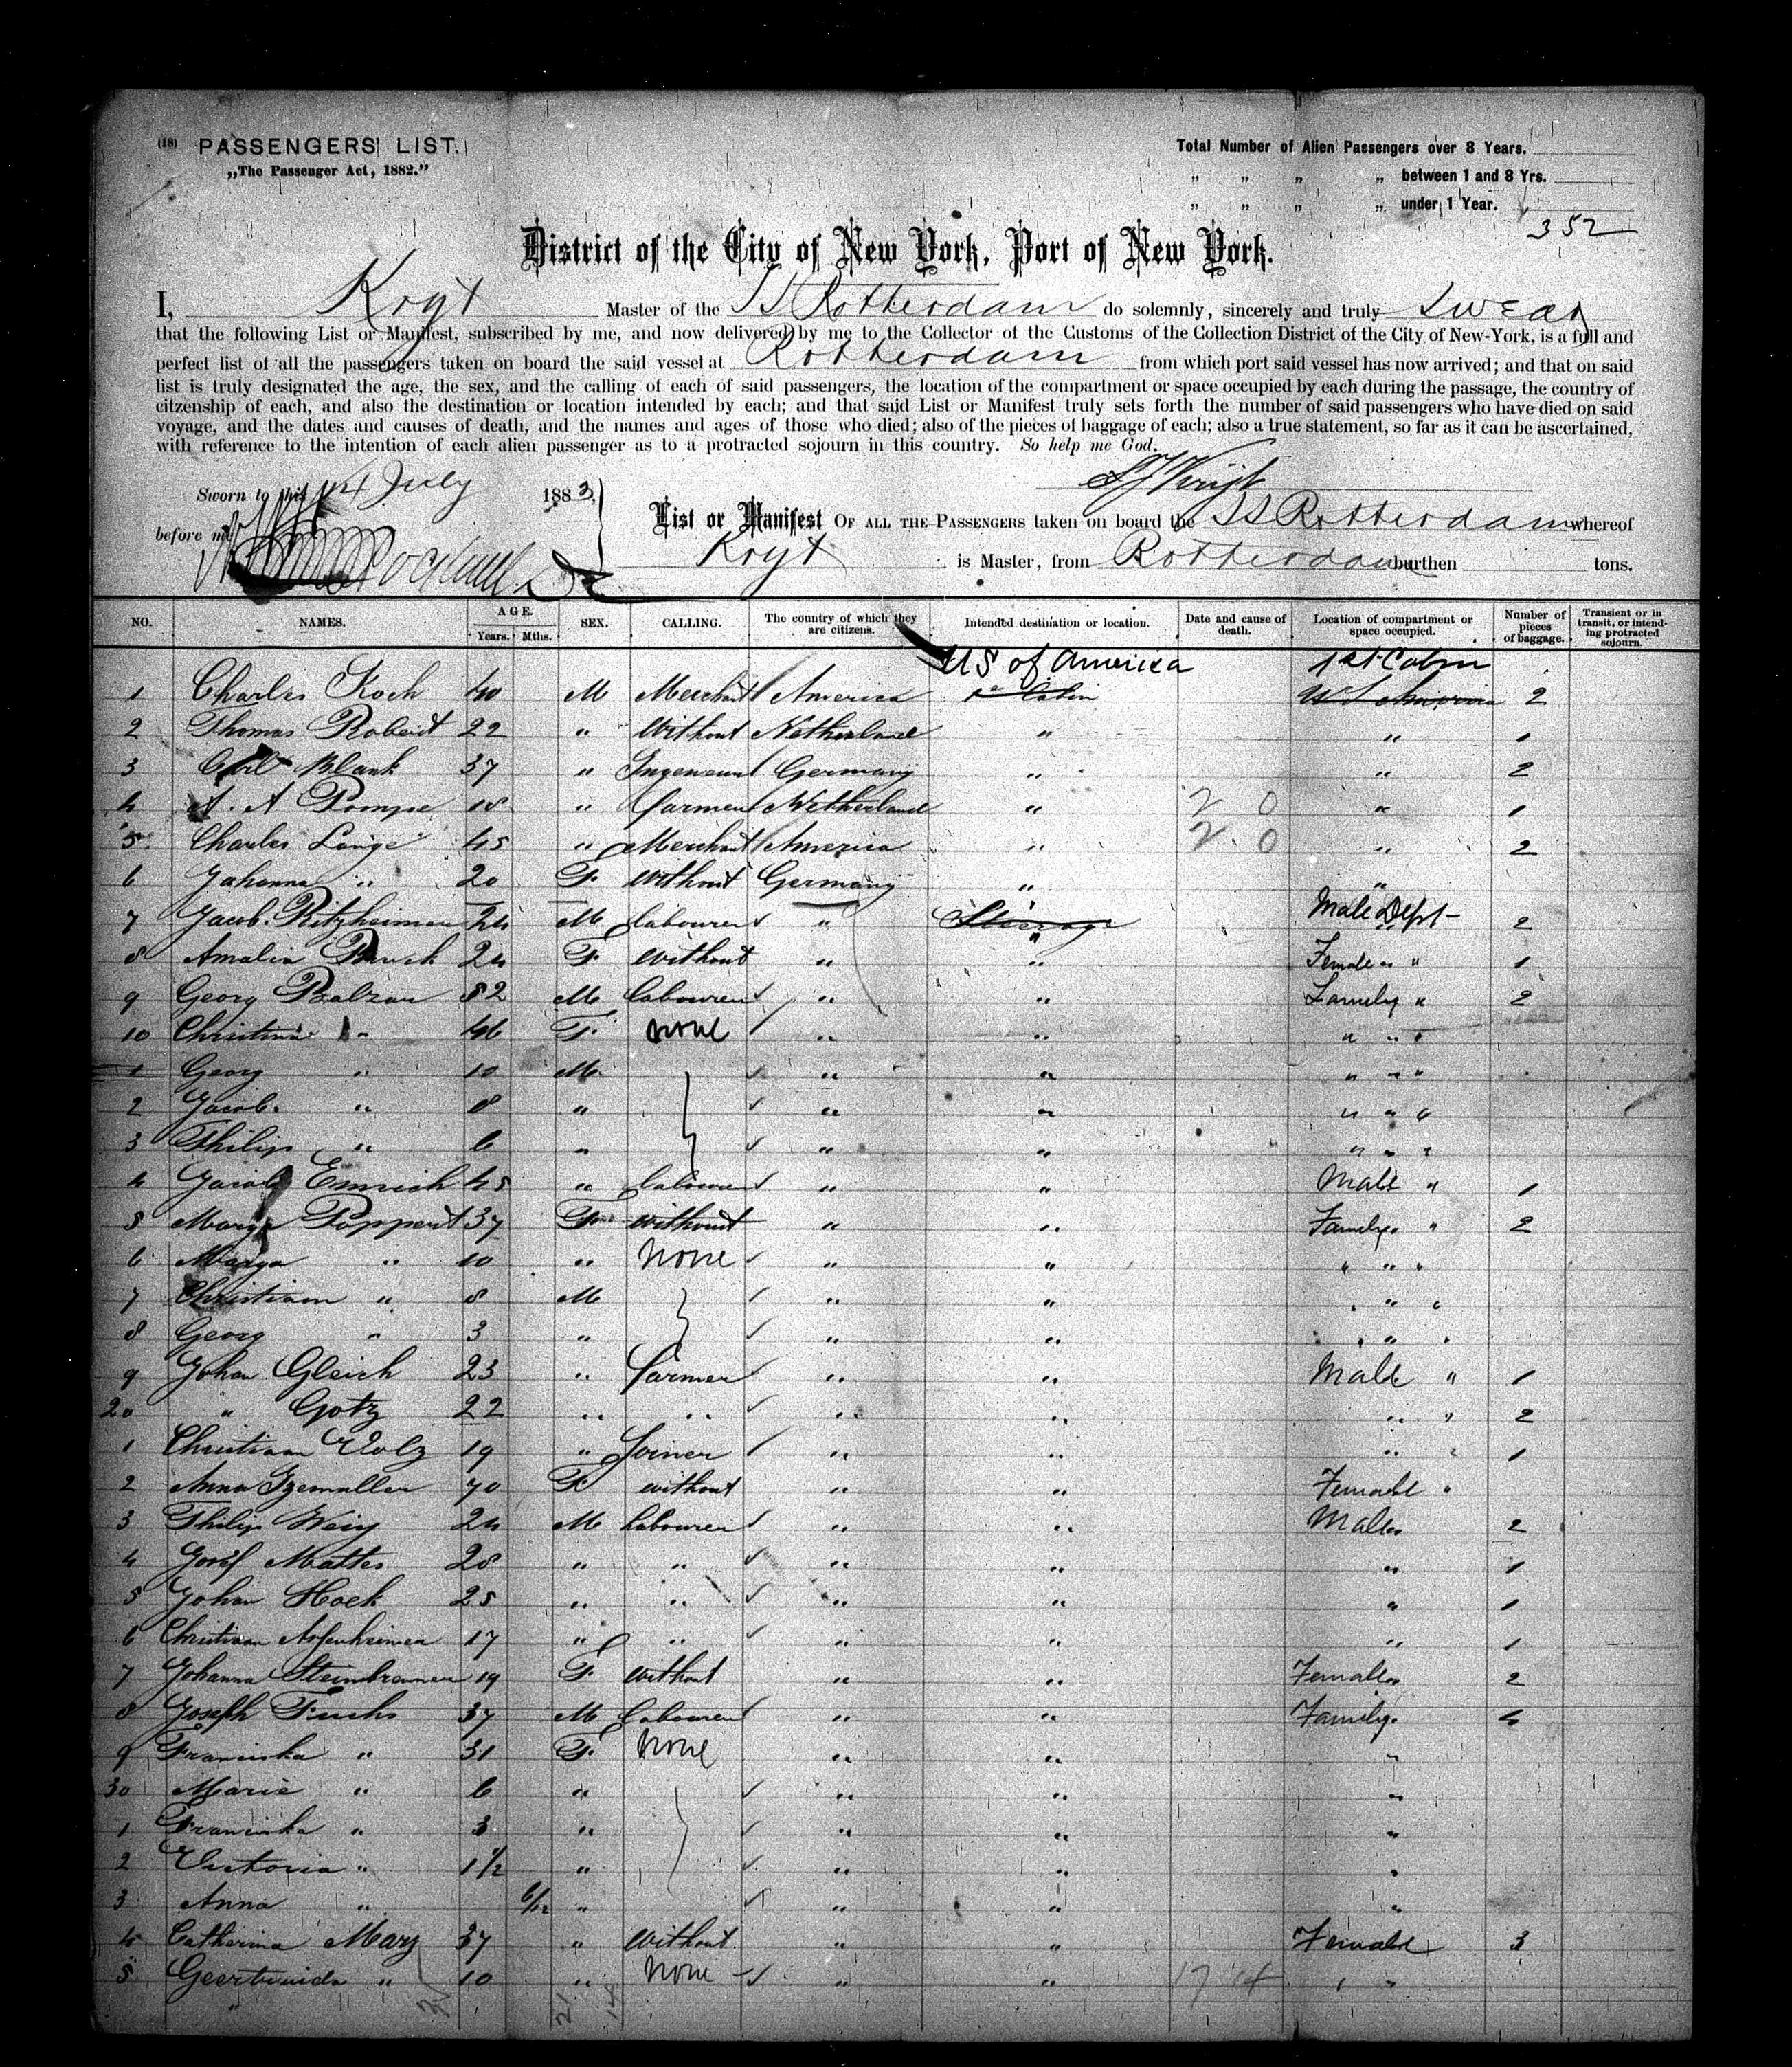 (18) PASSENGERS' LIST.
„The Passenger Act, 1882."
Total Number of Alien Passengers over 8 Years.
„ „ „ „ between 1 and 8 Yrs.
„ „ „ „ under 1 Year.
352
District of the City of New York, Port of New York.
I, Kryt Master of the SS Rotterdam do solemnly, sincerely and truly swear
that the following List or Manifest, subscribed by me, and now delivered by me to the Collector of the Customs of the Collection District of the City of New-York, is a full and
perfect list of all the passengers taken on board the said vessel at Rotterdam from which port said vessel has now arrived; and that on said
list is truly designated the age, the sex, and the calling of each of said passengers, the location of the compartment or space occupied by each during the passage, the country of
citzenship of each, and also the destination or location intended by each; and that said List or Manifest truly sets forth the number of said passengers who have died on said
voyage, and the dates and causes of death, and the names and ages of those who died; also of the pieces of baggage of each; also a true statement, so far as it can be ascertained,
with reference to the intention of each alien passenger as to a protracted sojourn in this country. So help me God.
Sworn to this 14 July 1883
before me
List or Manifest OF ALL THE PASSENGERS taken on board the SS Rotterdam whereof
Kryt is Master, from Rotterdam burthen tons.
NO. NAMES. AGE. Years. Mths. SEX. CALLING. The country of which they are citizens. Intended destination or location. Date and cause of death. Location of compartment or space occupied. Number of pieces of baggage. Transient or in transit, or intending protracted sojourn.
US of America 1st Cabin
1 Charles Koch 40 M Merchant America 2
2 Thomas Robert 22 " Without Netherland " " 1
3 Carl Blank 37 " Ingeneur Germany " " 2
4 A. A Pompe 18 " farmer Netherland " 2 0 " 1
5 Charles Lange 45 " Merchant America " 2 0 " 2
6 Johanna " 20 F without Germany " "
7 Jacob Ritzheimer 24 M labourer " Steerage Male Dept 2
8 Amalia 24 F without " " Female " 1
9 Georg Balzar 52 M labourer " " Family " 2
10 Christina " 46 F none " " " " "
1 Georg " 10 M " " " " "
2 Jacob " 8 " " " " " "
3 Philip " 6 " " " " " "
4 Jacob Emrich 45 " labourer " " Male " 1
5 Marga Poppert 37 F without " " Family " 2
6 Marga " 10 " none " " " " "
7 Christian " 8 M " " " " "
8 Georg " 3 " " " " " "
9 Johan Gleich 23 " farmer " " Male " 1
20 " Gotz 22 " " " " " " 2
1 Christian Volz 19 " Joiner " " " " 1
2 Anna 70 F without " " Female "
3 Philip Weiy 24 M labourer " " Male " 2
4 Josef Mattes 28 " " " " " 1
5 Johan Hock 25 " " " " " 1
6 Christian 17 " " " " " 1
7 Johanna Steinbrenner 19 F without " " Female " 2
8 Joseph Fuchs 37 M labourer " " Family 4
9 Franciska " 31 F none " " "
30 Marie " 6 " " " "
1 Franciska " 3 " " " "
2 Victoria " 1 1/2 " " " "
3 Anna " 6/12 " " " "
4 Catherina Mary 37 " without " " Female 3
5 Geertruida " 10 " none " " 17 14 " "
21 14